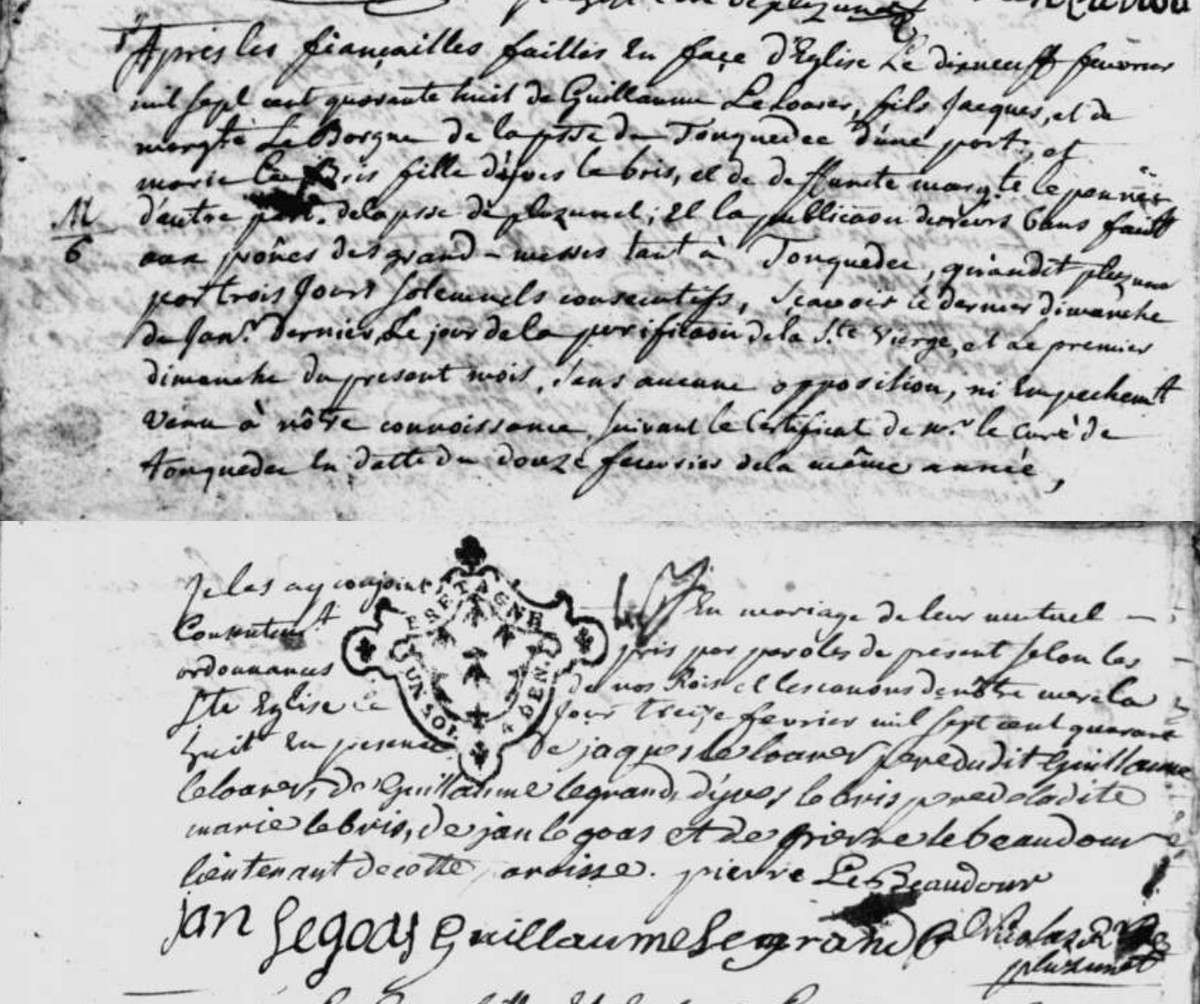 Après les fiançailles faittes En façe d'Eglise Le dixneuff fevrier
mil sept cent quarante huit de Guillaume Le Loarer, fils Jacques, et de
margte Le Borgne de la psse de Tonquedec d'une part, et
marie le Bris fille d'yves le bris, et de deffuncte margte le pennec
d'autre part. de la psse de pluzunet; Et la publicaon de leurs bans faitte
M
6
aux prônes des grand-messes tant à Tonquedec, qu'audit pluzunet
par trois Jours solemnels consecutifs, sçavoir le dernier dimanche
de Janr. dernier, Le jour de la purificaon de la Ste Vierge, et Le premier
dimanche du present mois, sans aucune opposition, ni Empechemt
venu à nôtre connoissance, suivant le Certificat de mr. le curé de
tonquedec en datte du douze fevrier de la même année,
Je les ay conjoint En mariage de leur mutuel
Consentemt pris par paroles de present selon les
ordonnances de nos Rois et les canons de nôtre mere la
Ste Eglise le jour treize fevrier mil sept cent quarante
huit En presence de jaques le loarer pere dudit Guillaume
le loarer, de Guillaume legrand, d'yves le bris pere de ladite
marie le bris, de jan le goas et de pierre le beaudour
lieutenant de cette paroisse. pierre Le Beaudour
BRETAGNE
UN SOL 4 DEN.
jan Le goas Guillaume Le grand Nicolas
pluzunet